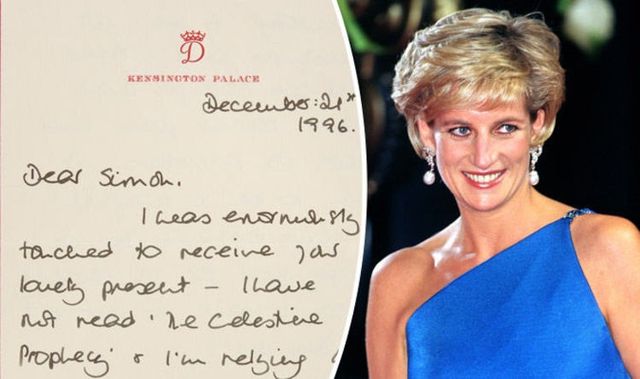 D
KENSINGTON PALACE
December: 21st
1996.
Dear Simon,
I was enormously
touched to receive your
lovely present - I have
not read 'The Celestine
Prophecy' & I'm relying